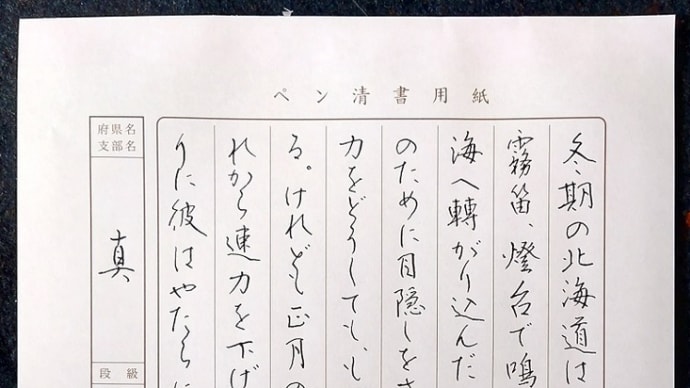 ペン清書用紙
冬期の北海道は
霧笛、燈台で鳴
海へ轉がり込んだ
のために目隠しをさ
力をどうしても、も
る。けれども正月の
れから速力を下げ
りに彼はやたらに
府県名
支部名
真
段級